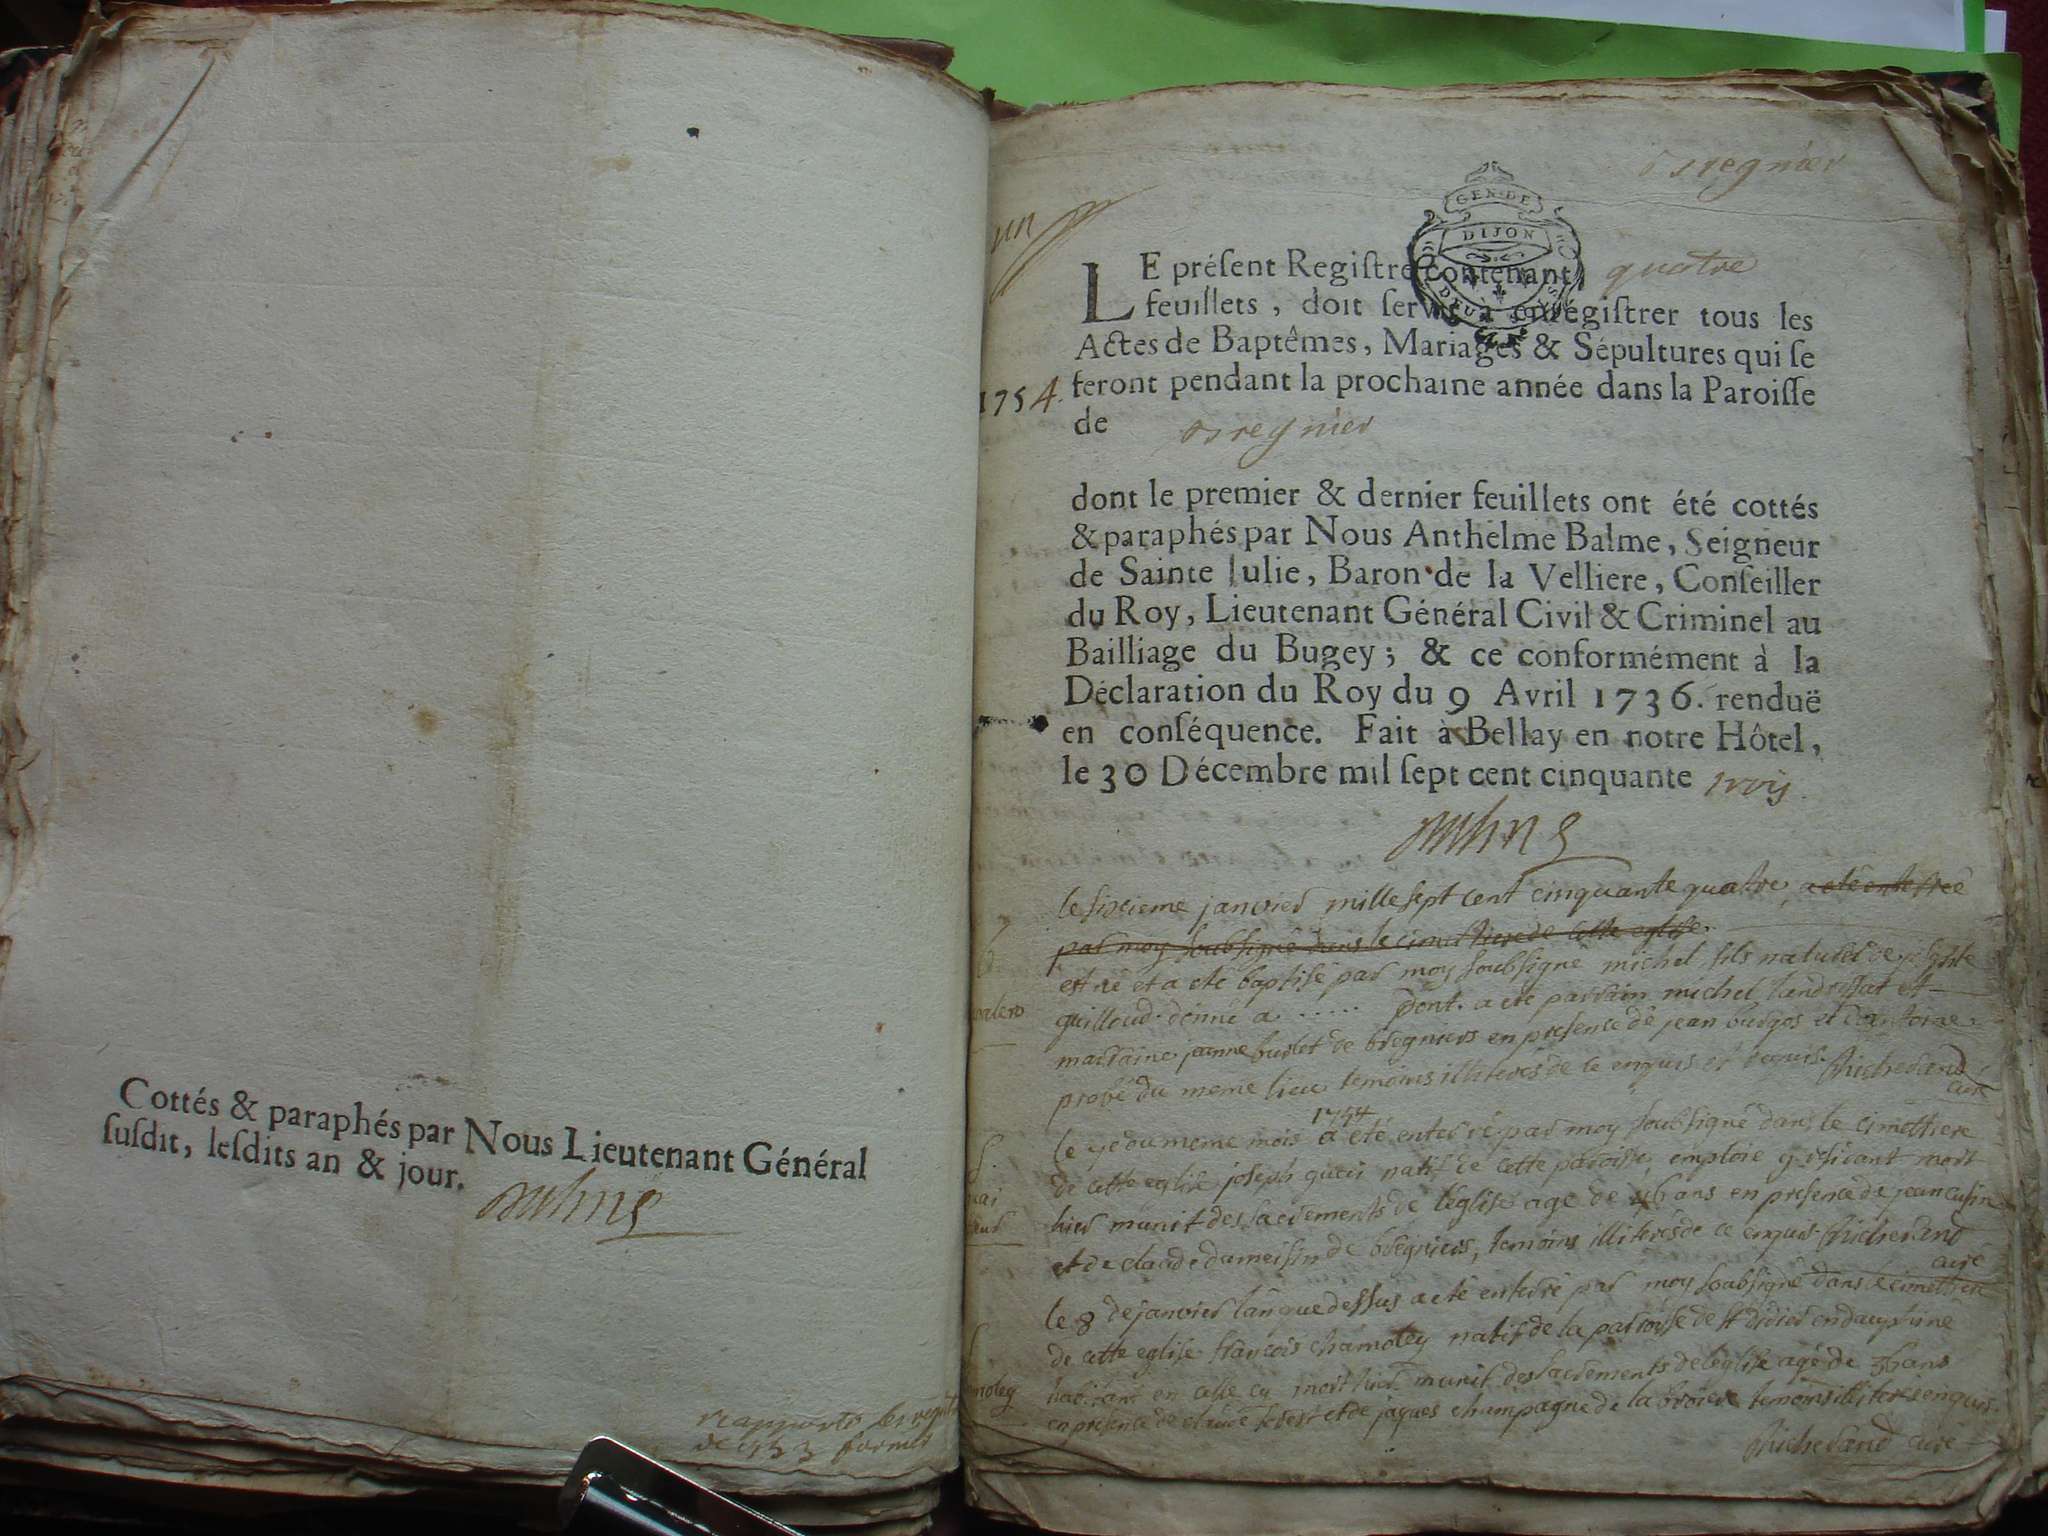 Cottés & paraphés par Nous Lieutenant Général
susdit, lesdits an & jour.
de 1753
un
1754.
GEN. DE
DIJON
DEUX SOLS
quatre
LE présent Registre contenant
feuillets, doit servir à enrégistrer tous les
Actes de Baptêmes, Mariages & Sépultures qui se
feront pendant la prochaine année dans la Paroisse
de
dont le premier & dernier feuillets ont été cottés
& paraphés par Nous Anthelme Balme, Seigneur
de Sainte Julie, Baron de la Velliere, Conseiller
du Roy, Lieutenant Général Civil & Criminel au
Bailliage du Bugey; & ce conformément à la
Déclaration du Roy du 9 Avril 1736. renduë
en conséquence. Fait à Bellay en notre Hôtel,
le 30 Décembre mil sept cent cinquante trois.
le sixieme janvier mille sept cent cinquante quatre, a eté enterré
par moy soubsigné dans le cimettiere de cette eglise.
est né et a eté baptisé par moy soubsigné michel fils naturel de
guilloud donné a ..... dont a eté parrain michel et
marraine janne burlet de bregniers en presence de jean et
du meme lieu temoins illiteres de ce enquis et requis. Richerand
curé
1754
le 7e du meme mois a eté enterré par moy soubsigné dans le cimettiere
de cette eglise joseph natif de cette paroisse, mort
hier munit des sacrements de l'eglise agé de 46 ans en presence de jean cusin
et de claude dameisin de bregniers, temoins illiteres de ce enquis Richerand
curé
le 8 de janvier l'an que dessus a eté enterré par moy soubsigné dans le cimettiere
de cette eglise francois chamoley natif de la paroisse de st didier en dauphine
habitant en cette cy mort hier munit des sacrements de l'eglise agé de 36 ans
en presence de claude et de jaques champagne de la temoins illiteres enquis.
Richerand curé